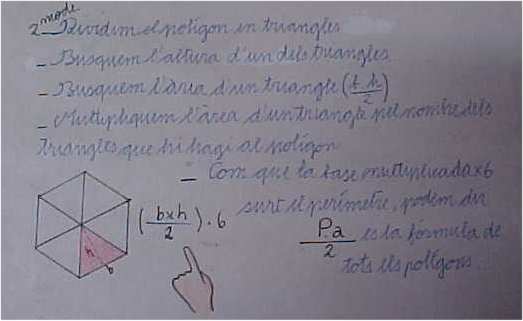 2 mode
- Dividim el polígon en triangles
- Busquem l'altura d'un dels triangles
- Busquem l'àrea d'un triangle (b.h/2)
- Multipliquem l'àrea d'un triangle pel nombre dels
triangles que hi hagi al polígon
- Com que la base multiplicada x6
surt el perímetre, podem dir
Pa/2 es la fórmula de
tots els polígons
(bxh/2) . 6
h
b